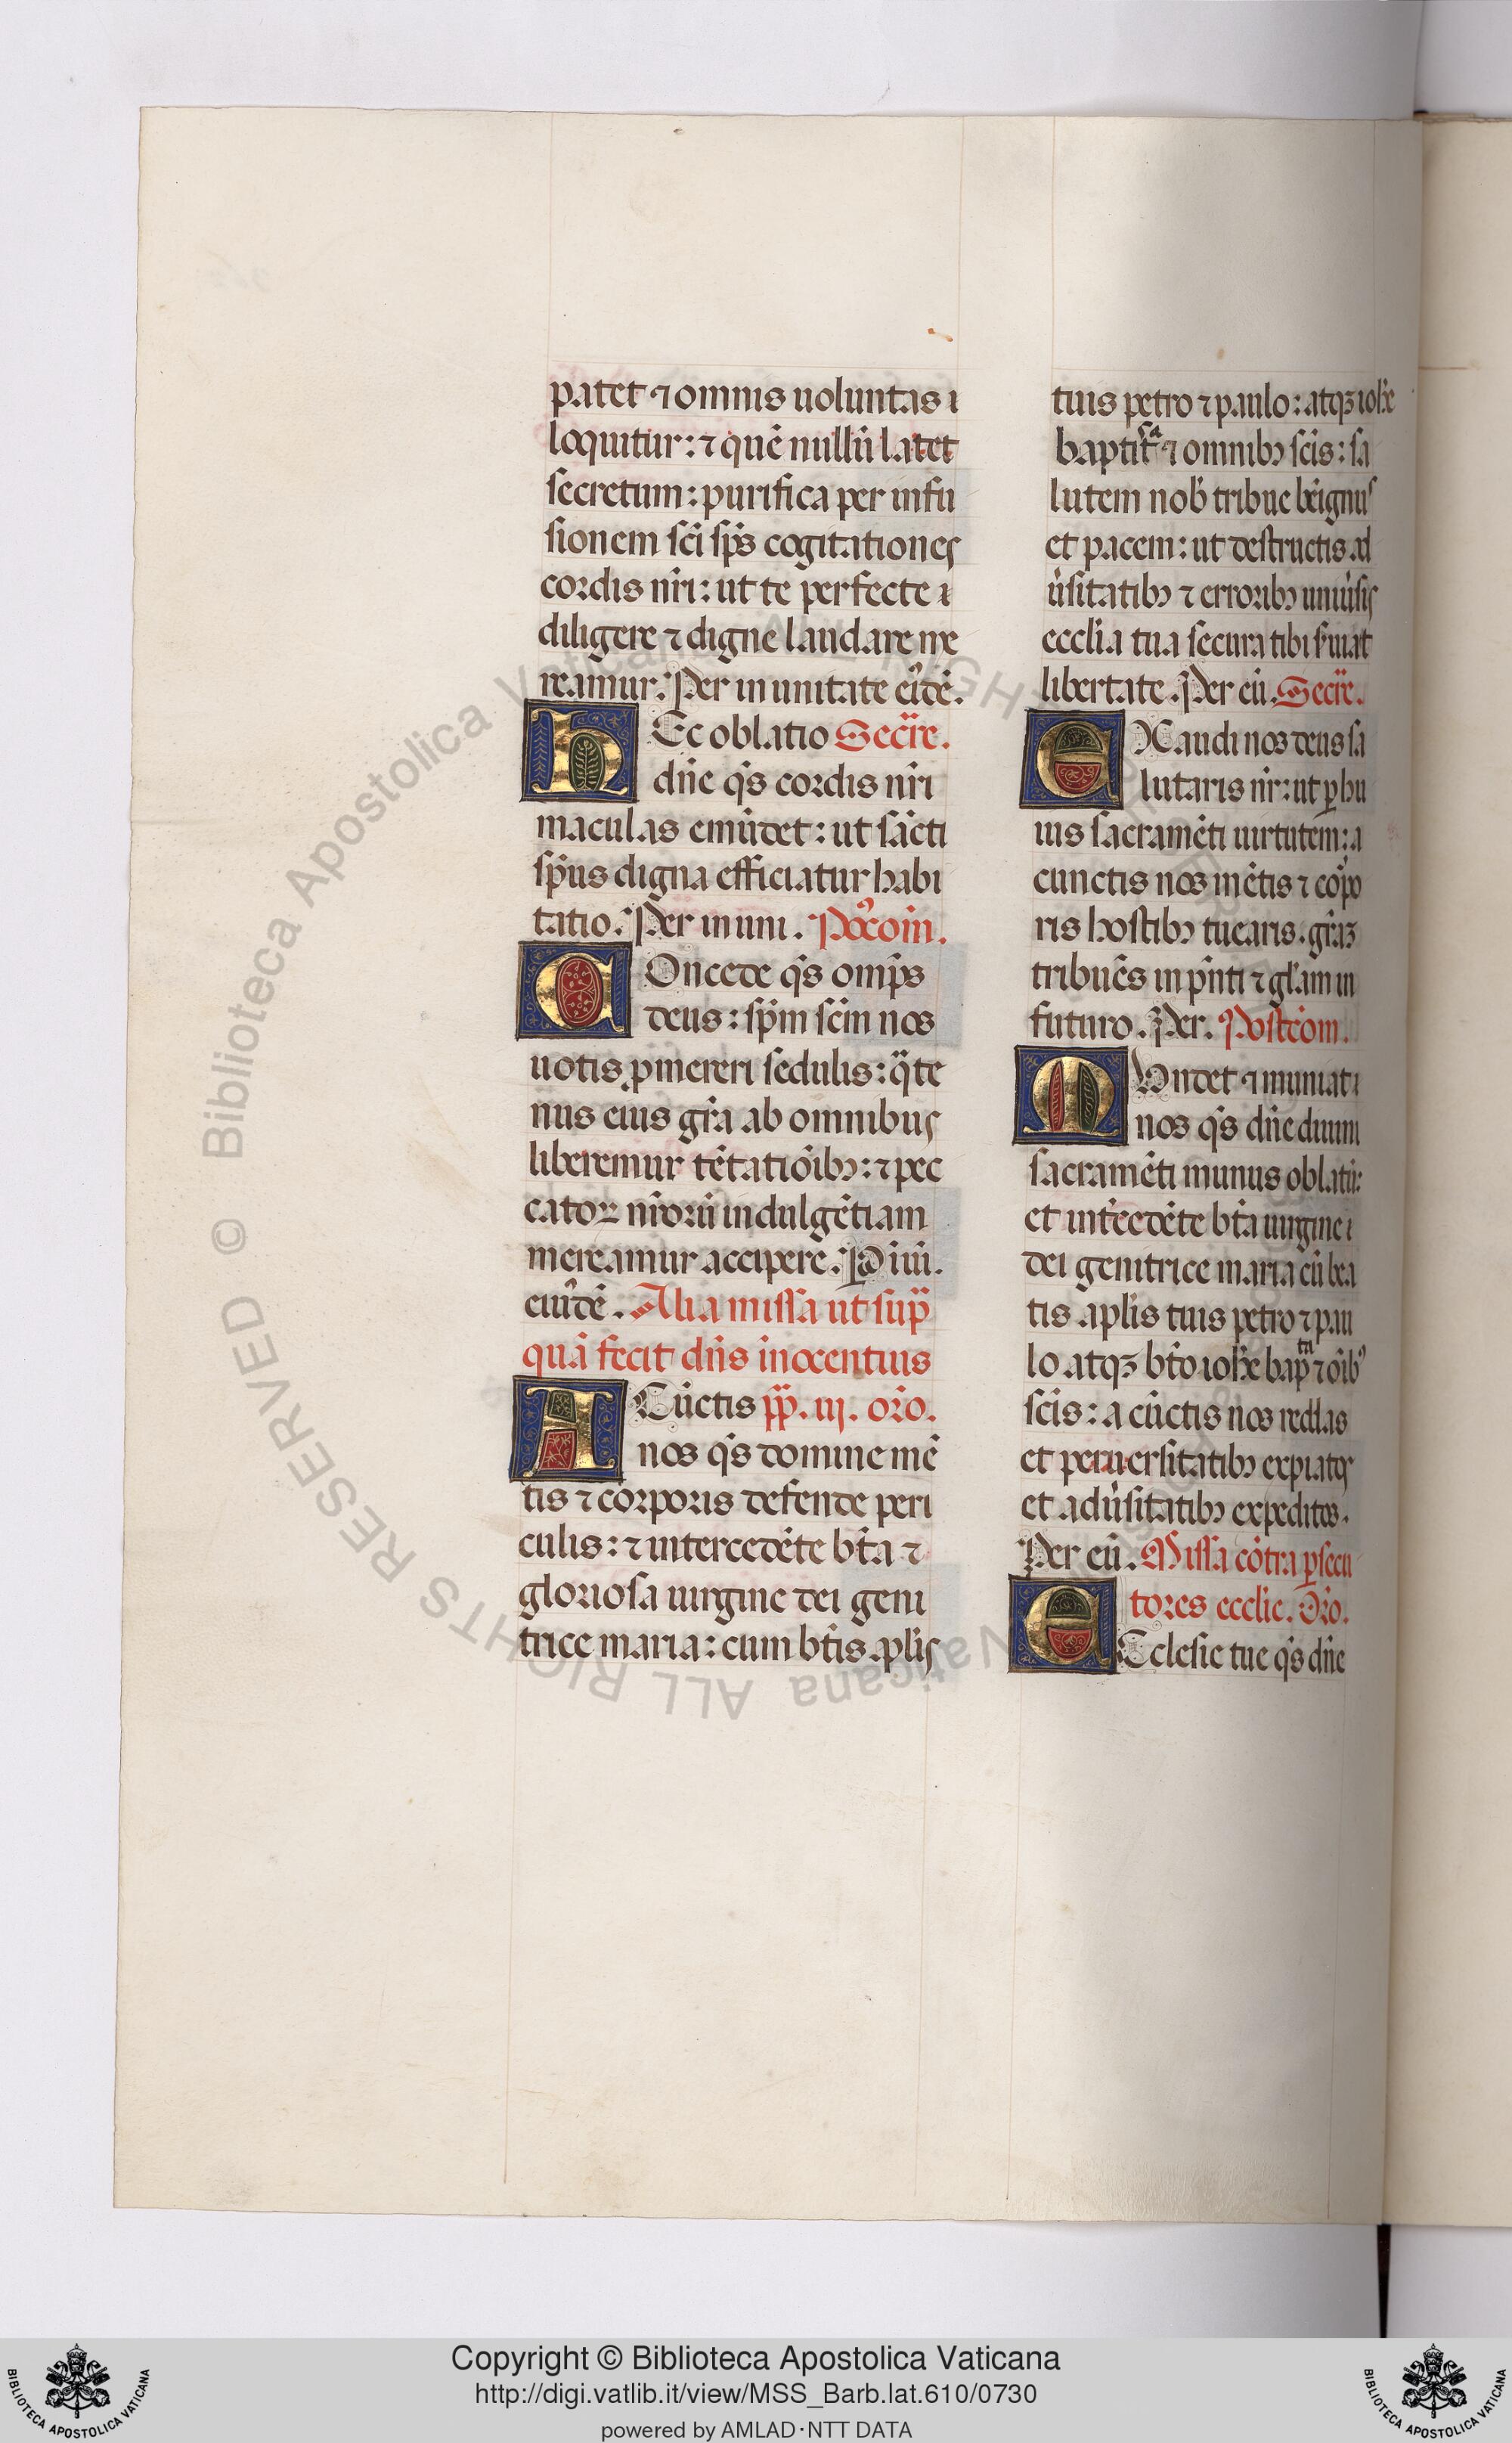 patet ⁊ omnis uoluntas ı
loquitur: ⁊ quē nullū latet
secretum: purifica per infu
sionem sc̄i sp̄s cogitationes
cordis nr̄i: ut te perfecte ı
diligere ⁊ digne laudare me
reamur. Per in unitate eiꝰdē.
hEc oblatio Secr̄e.
dn̄e q̄s cordis nr̄i
maculas emūdet: ut sācti
sp̄us digna efficiatur habi
tatio. Per in uni. Poꝰcoīn.
COncede q̄s om̄ps
deus: sp̄m sc̄m nos
uotis ꝓmereri sedulis: q̄te
nus eius gr̄a ab omnibus
liberemur tētatiōibꝫ: ⁊ pec
catoꝝ nr̄orū indulgētiam
mereamur accipere. P i ūi.
eiuꝰdē. Alia missa ut supͣ
quā fecit dn̄s inocentius
ACūctis pp̄. iij. or̄o.
nos q̄s domine mē
tis ⁊ corporis defende peri
culis: ⁊ intercedēte bt̄a ⁊
gloriosa uirgine dei geni
trice maria: cum bt̄is apl̄is
tuis petro ⁊ paulo: atqꝫ ioh̄e
baptistͣ ⁊ omnibꝫ sc̄is: sa
lutem nob̄ tribue bēignus
et pacem: ut destructis ad
ūsitatibꝫ ⁊ erroribꝫ uniūsis
eccl̄ia tua secura tibi s̄uiat
libertate. Per eū. Secr̄e.
EXaudi nos deus sa
lutaris nr̄: ut ꝑ hu
ius sacramēti uirtutem: a
cunctis nos mētis ⁊ coꝛ̄po
ris hostibꝫ tuearis. gr̄aꝫ
tribuēs in pn̄ti ⁊ gl̄am in
futuro. Per. Postcōm.
MUndet ⁊ muniat ı
nos q̄s dn̄e diuini
sacramēti munus oblatū:
et int̄cedēte bt̄a uirgine ı
dei genitrice maria cū bea
tis apl̄is tuis petro ⁊ pau
lo atqꝫ bt̄o ioh̄e bap̄tͣ ⁊ oībꝰ
sc̄is: a cūctis nos reddas
et peruersitatibꝫ expiatos
et adūsitatibꝫ expeditos.
Per eū. Missa cōtra ꝑsecu
tores ecclie. Or̄o.
ECclesie tue q̄s dn̄e
© Biblioteca Apostolica Vaticana ALL RIGHTS RESERVED
Copyright © Biblioteca Apostolica Vaticana
http://digi.vatlib.it/view/MSS_Barb.lat.610/0730
powered by AMLAD·NTT DATA
BIBLIOTECA APOSTOLICA VATICANA
BIBLIOTECA APOSTOLICA VATICANA